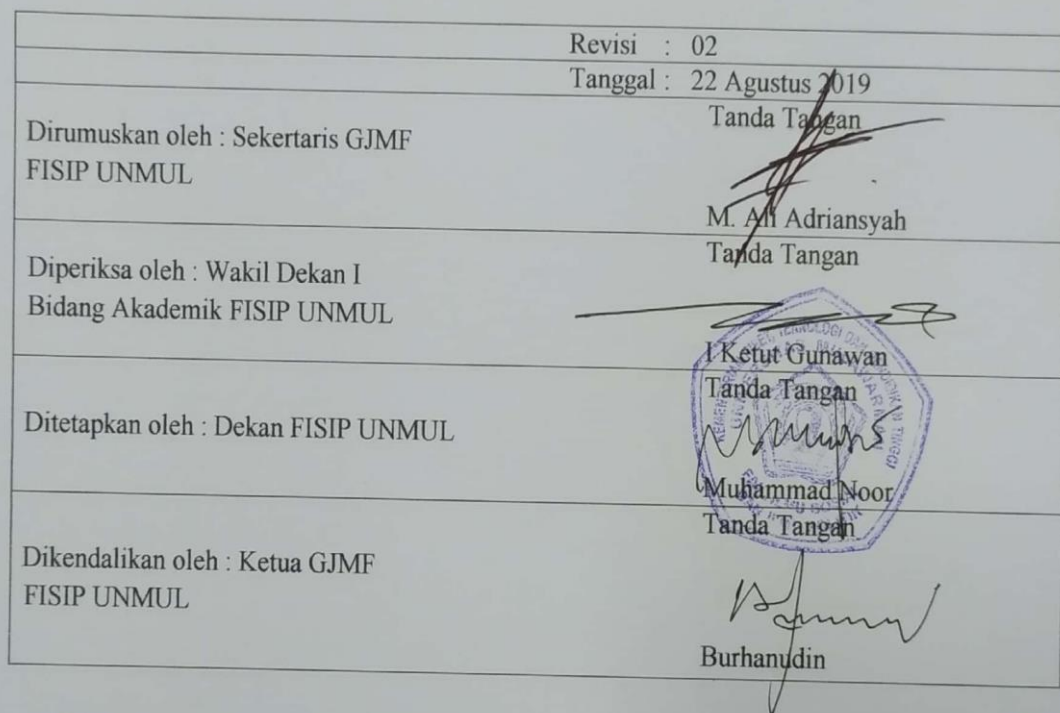 Revisi : 02
Tanggal : 22 Agustus 2019
Dirumuskan oleh : Sekertaris GJMF
FISIP UNMUL
Tanda Tangan
M. Ali Adriansyah
Diperiksa oleh : Wakil Dekan I
Bidang Akademik FISIP UNMUL
Tanda Tangan
I Ketut Gunawan
Ditetapkan oleh : Dekan FISIP UNMUL
Tanda Tangan
Muhammad Noor
Dikendalikan oleh : Ketua GJMF
FISIP UNMUL
Tanda Tangan
Burhanudin